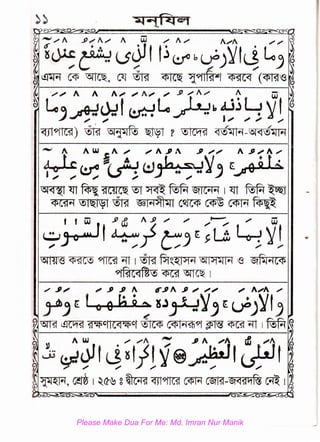 ১১ মনযিল
وَمَا فِي الْأَرْضِ ؕ مَنْ ذَا الَّذِي يَشْفَعُ عِنْدَهٗٓ
এমন কে আছে, যে তাঁর কাছে সুপারিশ করবে (কারও
إِلَّا بِإِذْنِهٖ ؕ يَعْلَمُ مَا بَيْنَ أَيْدِيهِمْ وَمَا
ব্যাপারে) তাঁর অনুমতি ছাড়া ? তাদের বর্তমান-অবর্তমান
خَلْفَهُمْ ۚ وَلَا يُحِيطُونَ بِشَيْءٍ مِّنْ عِلْمِهٖٓ
অবস্থা যা কিছু রয়েছে তা সবই তিনি জানেন। যা তিনি ইচ্ছা
করেন তাছাড়া তাঁর জ্ঞানসীমা থেকে কেউ কোন কিছুই
إِلَّا بِمَا شَاءَ ۚ وَسِعَ كُرْسِيُّهُ السَّمٰوٰتِ
আয়ত্ত করতে পারে না। তাঁর সিংহাসন আসমান ও জমিনকে
পরিবেষ্টিত করে আছে।
وَالْأَرْضَ ۚ وَلَا يَئُودُهٗ حِفْظُهُمَا ۚ وَهُوَ
আর এদের রক্ষণাবেক্ষণ তাঁকে কোনরূপ ক্লান্ত করে না। তিনি
الْعَلِيُّ الْعَظِيمُ ﴿٢٥٥﴾ لَا إِكْرَاهَ فِي الدِّينِ
সুমহান, শ্রেষ্ঠ। ২৫৬ঃ দ্বীনের ব্যাপারে কোন জোর-জবরদস্তি নেই।
Please Make Dua For Me: Md. Imran Nur Manik